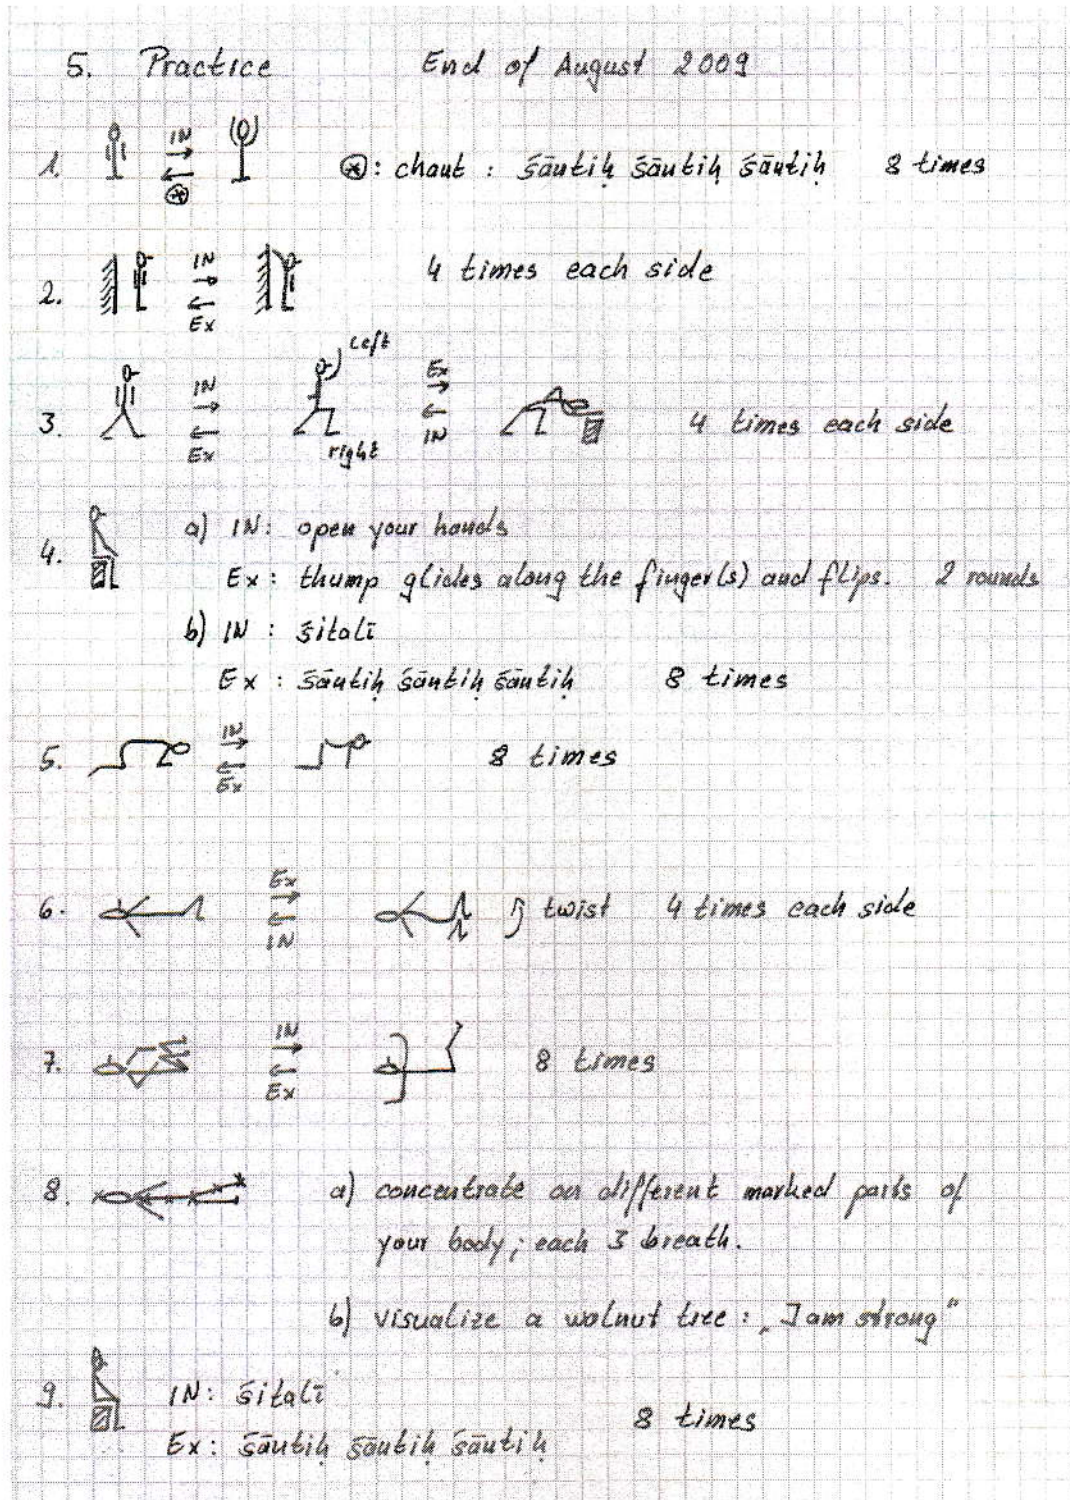 5. Practice End of August 2009
1. IN ⊛ ⊛: chant : śāntiḥ śāntiḥ śāntiḥ 8 times
2. IN Ex 4 times each side
left
3. IN Ex Ex IN 4 times each side
right
4. a) IN: open your hands
Ex: thump glides along the finger(s) and flips. 2 rounds
b) IN : śitalī
Ex : śāntiḥ śāntiḥ śāntiḥ 8 times
5. IN Ex 8 times
6. Ex IN twist 4 times each side
7. IN Ex 8 times
8. a) concentrate on different marked parts of
your body; each 3 breath.
b) visualize a walnut tree : „I am strong“
9. IN: śitalī
8 times
Ex: śāntiḥ śāntiḥ śāntiḥ